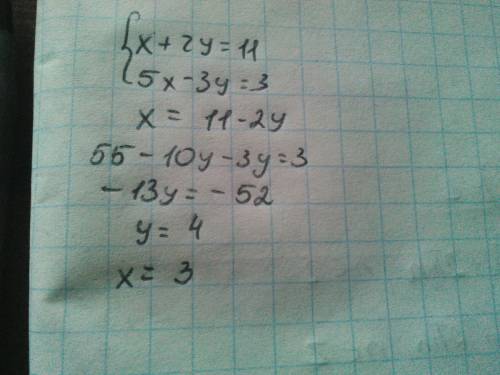 {x+2y=11
5x-3y=3
x= 11-2y
55-10y-3y=3
-13y=-52
y= 4
x= 3